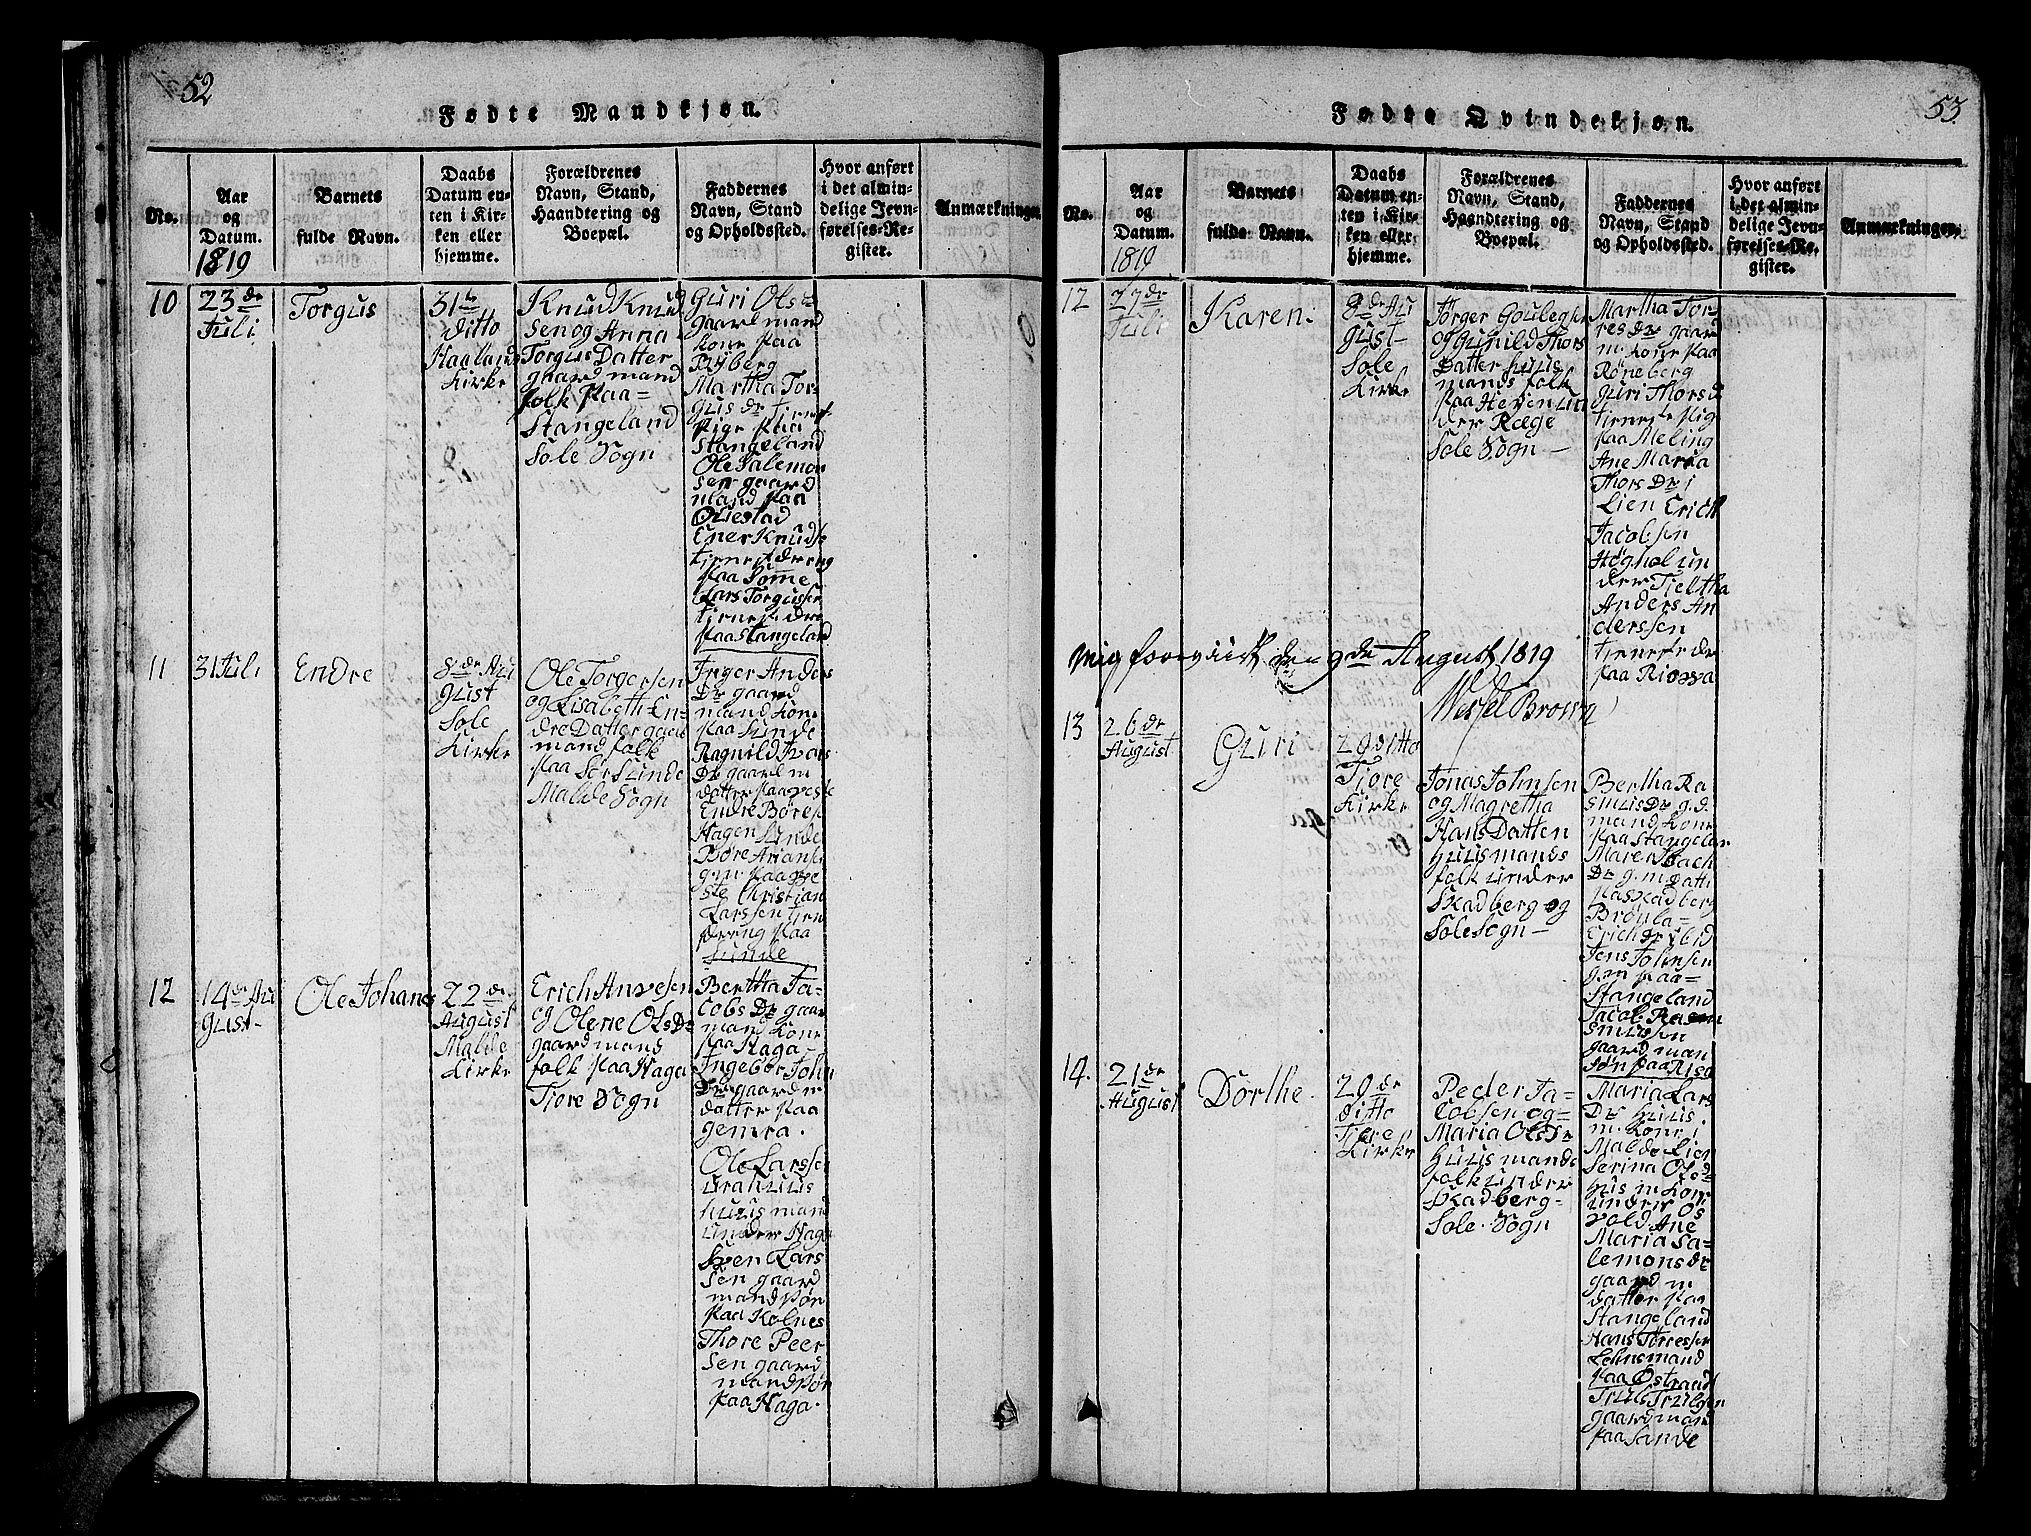 52
Fødte Mandkjøn.
No.
Aar
og
Datum.
1819
Barnets
fulde Navn.
Daabs
Datum en-
ten i Kir-
ken eller
hjemme.
Forældrenes
Navn, Stand,
Haandtering og
Boepæl.
Faddernes
Navn, Stand
og Opholdssted.
Hvor anført
i det almin-
delige Jevn-
førelses-Re-
gister.
Anmærkninger
10
23de
Juli
Torgus
31te
ditto
Haaland
Kirke
Knud Knud
sen og Anna
Torgus Datter
gaard mand
folk paa
Stangeland
Sole Sogn
Guri Ols
gaard mand
kone paa
Ryberg
Martha Tor-
gus dr tienest
pige paa
Stangeland
Ole Salemon
sen gaard
mand paa
Oliestad
Ener Knuds
tienestdreng
paa Tome
Lars Torgusse
tienest dre
paa Stangeland
11
31 Juli
Endre
8de Au
gust
Sole
Kirke
Ole Torgersen
og Lisabeth En-
dre Datter gaard
mand folk
paa Sør Sunde
Malde Sogn
Inger Anders
Dr gaard
mand kone
paa Sunde
Ragnild Ivars
Dr gaard m
datter paa veste
Endre Børe
Hagen Sunde
Børe Arians
g.m. paa ve
ste Christian
Larssen tien
dreng paa
Sunde
12
14de Au
gust
Ole Johanes
22de
August
Malde
Kirke
Erich Anvesen
og Olene Ols Dr
gaard mands
folk paa Haga
Tiore Sogn
Bertha Ja-
cobs Dr gaar
mand kone
paa Haga
Ingebor John
Dr gaard m
datter paa
Gemra.
Ole Larssen
huusmand
under Haga
Sven Lars
sen gaard
mand søn
paa Kolnes
Thore Peer
sen gaard
mand søn
paa Haga.
53.
Fødte Qvindekjøn.
No.
Aar
og
Datum.
1819
Barnets
fulde Navn.
Daabs
Datum en-
ten i Kir-
ken eller
hjemme.
Forældrenes
Navn, Stand,
Haandtering og
Boepæl.
Faddernes
Navn, Stand
og Opholdssted.
Hvor anført
i det almin-
delige Jevn-
førelses-Re-
gister.
Anmærkninger
12
27de
Juli
Karen.
8de Au
gust
Sole
Kirke
Tørger Goulegsen
og Gunild Thors
Datter huus
mands folk
paa Heyen un
der Ræge
Sole Sogn
Martha Tor
res Dr gaard
m. kone paa
Røneberg
Guri Thors d
tieneste pig
paa Meling
Ane Maria
Thors Dr i
Lien Erich
Jacobsen
Høghol un
der Tieltha
Anders An
derssen
tieneste de
paa Riosva
Mig foreviist den 9de August 1819
Wessel Brown
13
26de
August
Guri
29 ditto
Tiore
Kirke
Jonas Johnsen
og Magretha
Hans Datten
huusmands
folk under
Skadberg og
Sole Sogn
Bertha Ra
smus Dr g.d.
mand kone
paa Stangelan
Maren Isach
Dr g.m datt
paa Skadberg
Broula
Erich Dr ibid
Jens Johnsen
g.m paa
Stangeland
Jacob Rasm
smussen
gaard man
søn paa Risa
14.
21de
August
Dorthe.
29de
ditto
Tiore
Kirke
Peder Ja-
cobsen og
Maria Ols Dr
huusmands
folk under
Skadberg
Sole Sogn
Maria Lars
Dr huus
m. kone i
Malde Lien
Serina Ols d
hus m kone
under Os
vold Ane
Maria Sa-
lemons dr
gaard m
datter paa
Stangeland
Hans Torressen
Lehnsmand
paa Østraadt
Truls Trulsen
gaardmand
paa Sande